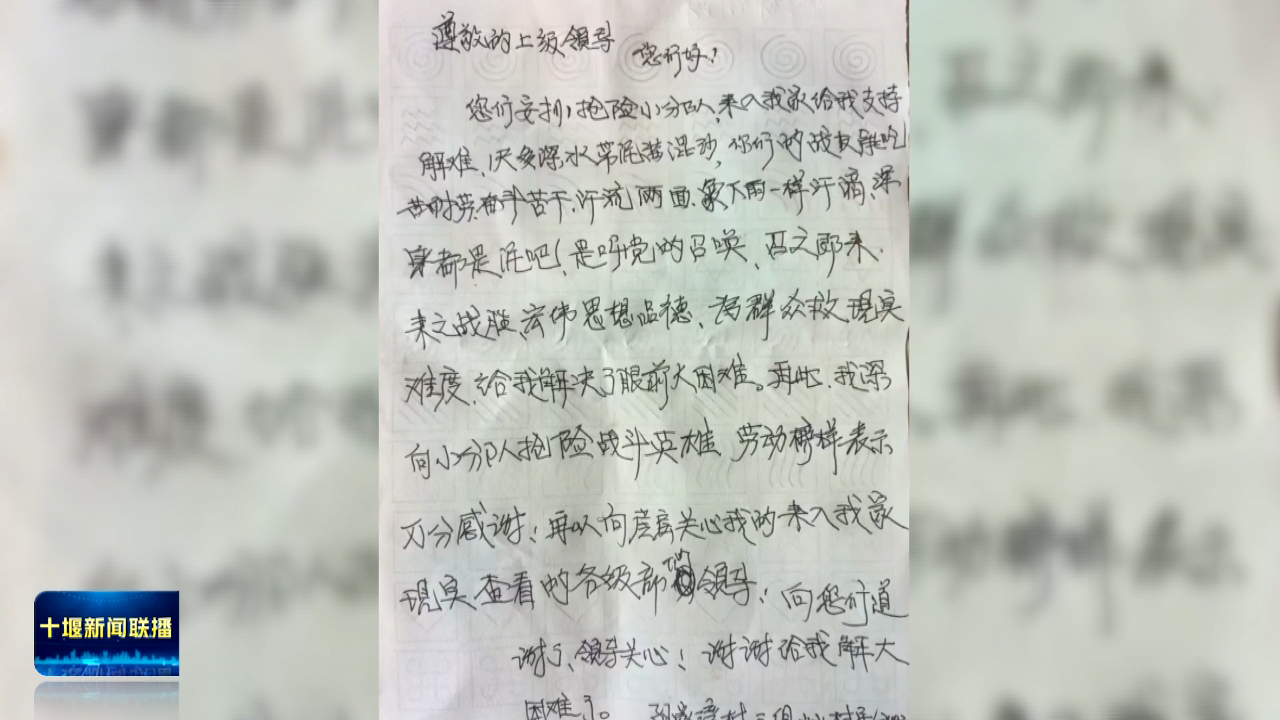 尊敬的上级领导
您们好!
您们安排抢险小分队,来入我家给我支持
解难、天多深水带泥浩混沙,你们的战友能吃
苦耐劳,奋斗苦干,汗流两面,象下雨一样汗滴、深
身都是泥吧!是呼党的召唤、召之即来、
来之战胜、宏伟思想品德、为群众救现实
难度、给我解决了眼前大困难。再此、我深
向小分队抢险战斗英雄、劳动榜样表示
万分感谢!再以向层层关心我的来入我家
现实查看的各级部门领导!向您们道
谢了、领导关心!谢谢给我解大
困难了。
十堰新闻联播